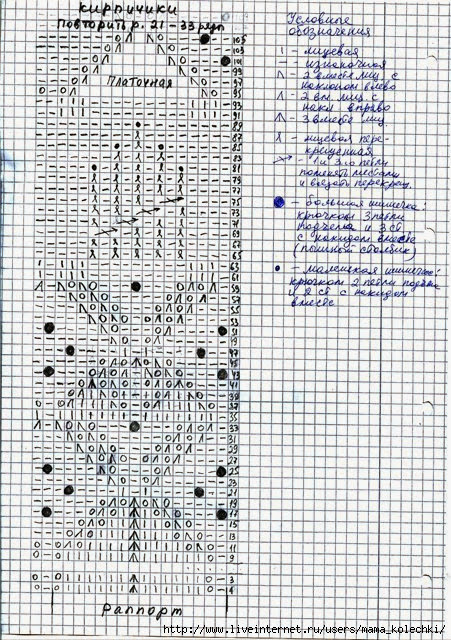 кирпичики
повторить р. 21 - 33
Платочная
Условные
обозначения
| - лицевая
— - изнаночная
2 вместе лиц. с
наклоном влево
2 вм. лиц. с
накл вправо
3 вместе лиц
лицевая пере-
крещенная
1 и 3ю петли
поменять местами
и вывязать перекрещ.
- большая шишечка:
крючком 3 петли
подъема и 3 сб
с накидом вместе
(пышный столбик)
- маленькая шишечка:
крючком 2 петли подъема
и 2 сб с накидом
вместе
105
103
101
99
97
95
93
91
89
87
85
83
81
79
77
75
73
71
69
67
65
63
61
59
57
55
53
51
49
47
45
43
41
39
37
35
33
31
29
27
25
23
21
19
17
15
13
11
9
3
1
Раппорт
http://www.liveinternet.ru/users/mama_kolechki/